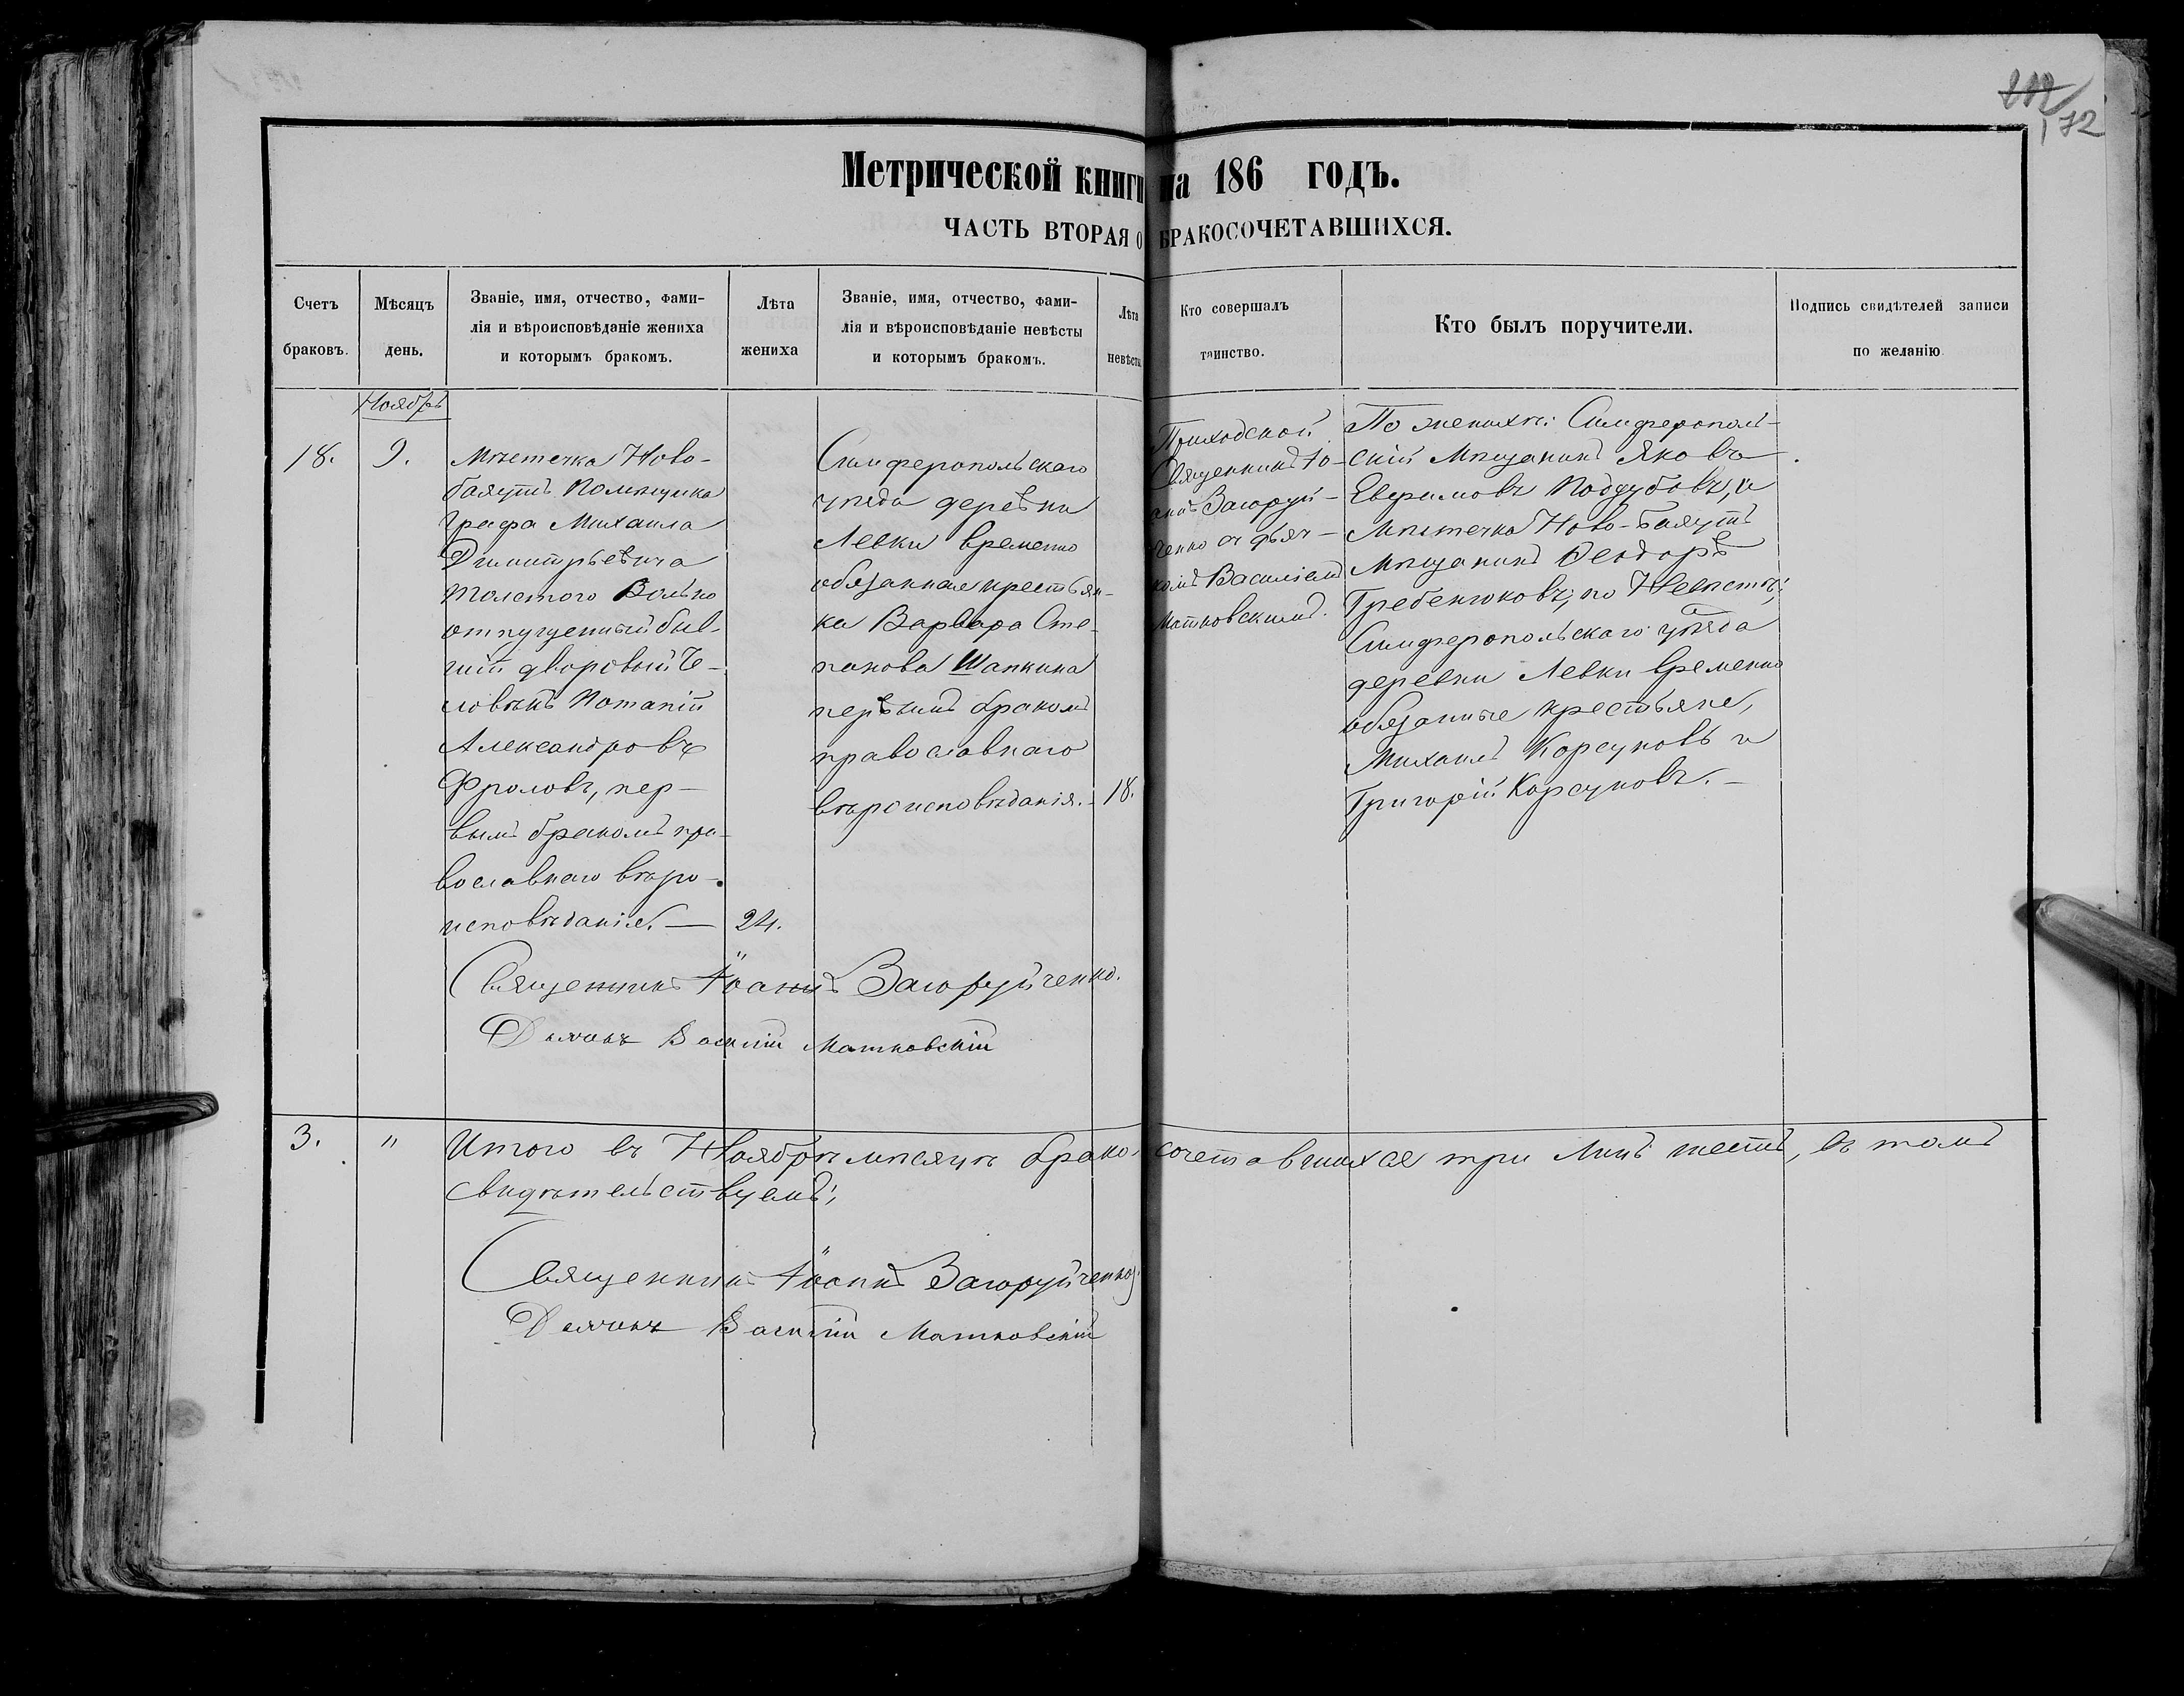 172
Метрической книги на 186 годъ.
ЧАСТЬ ВТОРАЯ О БРАКОСОЧЕТАВШИХСЯ.
Счетъ
браковъ.
Мѣсяцъ
день.
Званіе, имя, отчество, фами-
лія и вѣроисповѣданіе жениха
и которымъ бракомъ.
Лѣта
жениха
Званіе, имя, отчество, фами-
лія и вѣроисповѣданіе невѣсты
и которымъ бракомъ.
Лѣта
невѣсты
Кто совершалъ
таинство.
Кто былъ поручители.
Подпись свидѣтелей записи
по желанію
Ноябрь
18.
9.
Мѣстечка Ново-
баяутъ Помѣщика
Графа Михаила
Димитрьевича
Толстого Вольно
отпущенный быв-
шій дворовый Че-
ловѣкъ Потапій
Александровъ
Фроловъ, пер-
вымъ бракомъ пра-
вославнаго вѣро-
исповѣданія. —
24.
Симферопольскаго
уѣзда деревни
Левки временно
обязанная крестьян-
ка Варвара Сте-
панова Шапкина
первымъ бракомъ
православнаго
вѣроисповѣданія. -
18.
Приходской
Священникъ Іо-
аннъ Загоруй-
ченко съ дьяч-
комъ Василіемъ
Матковскимъ.
По женихѣ: Симферополь-
скій Мѣщанинъ Яковъ
Евфимовъ Поддубовъ, и
Мѣстечка Ново-Баяутъ
Мѣщанинъ Феодоръ
Гребенюковъ; по Невѣстѣ;
Симферопольскаго уѣзда
деревни Левки временно
обязанные крестьяне,
Михаилъ Корсуновъ и
Григорій Корсуновъ. —
Священникъ Іоаннъ Загоруйченко.
Дьячокъ Василій Матковскій
3.
"
Итого въ Ноябрѣ мѣсяцѣ бракосочетавшихся три Лицъ шесть, въ томъ
свидѣтельствуемъ;
Священникъ Іоаннъ Загоруйченко
Дьячокъ Василій Матковскій